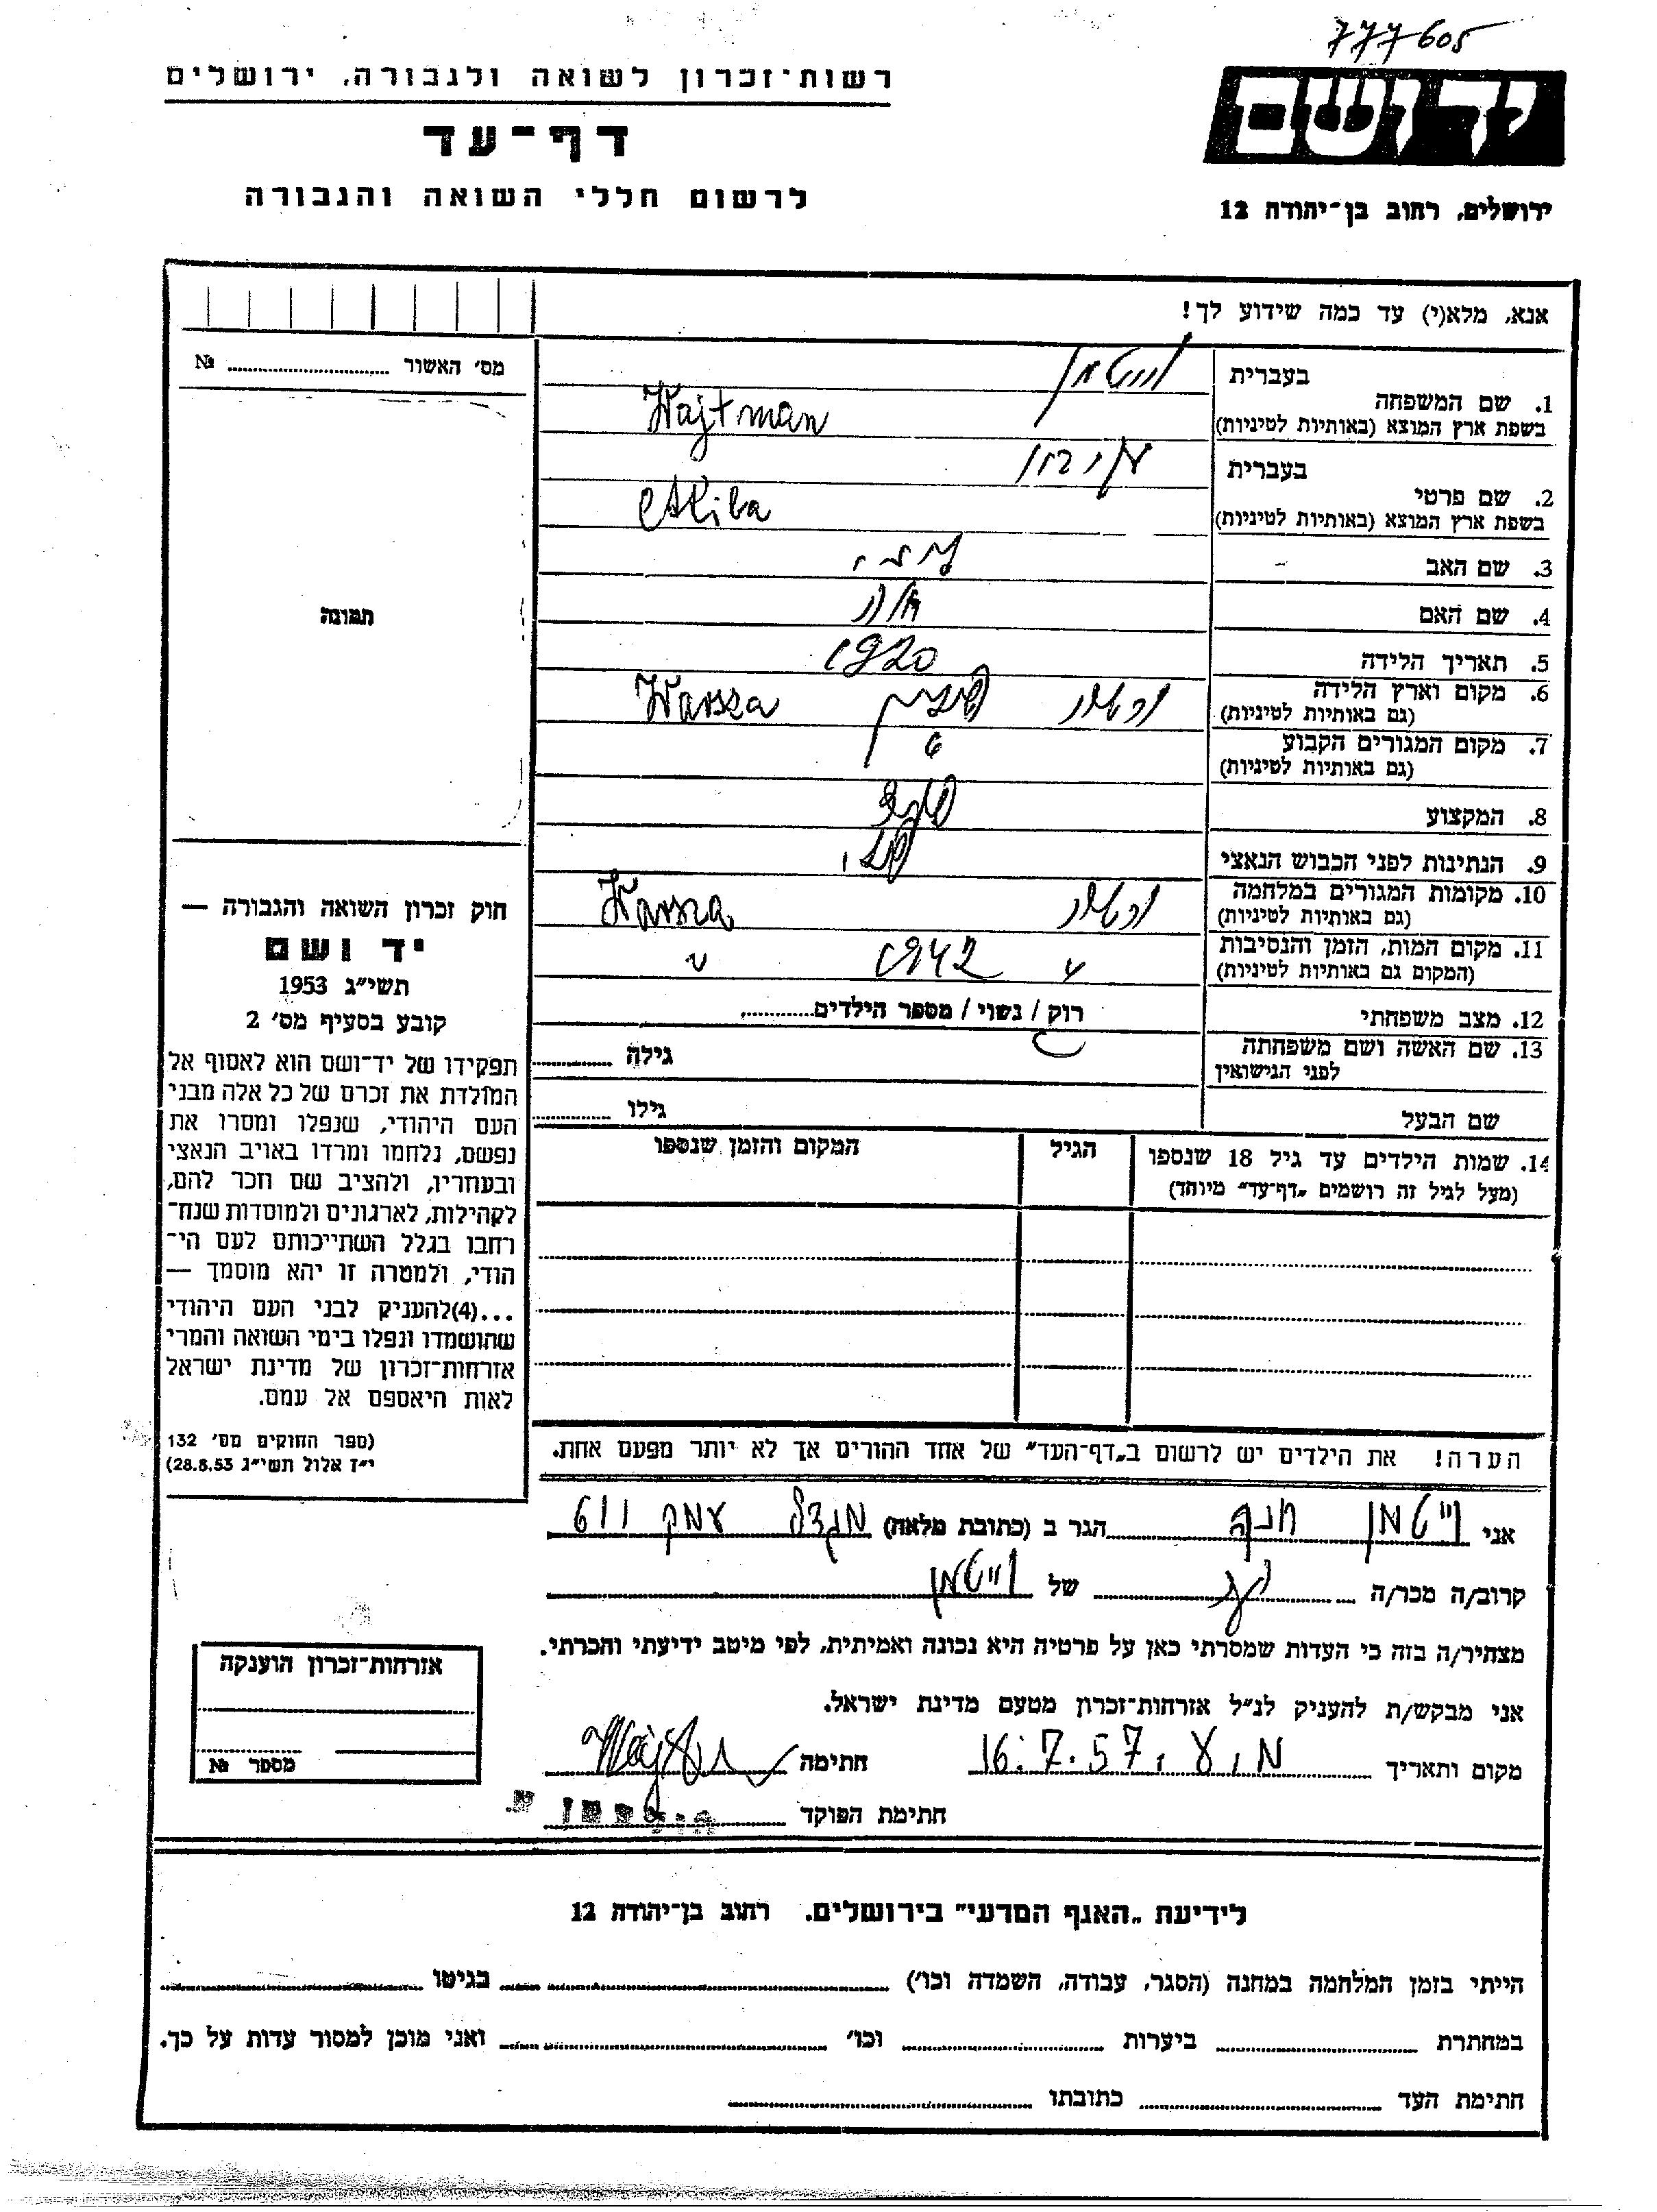 777605
רשות־זכרון לשואה ולגבורה, ירושלים
יד ושם
דף־עד
לרשום חללי השואה והגבורה
ירושלים, רחוב בן־יהודה 12
אנא, מלא(י) עד כמה שידוע לך!
מס׳ האשור ........ №
1. שם המשפחה
בעברית וייטמן
בשפת ארץ המוצא (באותיות לטיניות) Wajtman
2. שם פרטי
בעברית
בשפת ארץ המוצא (באותיות לטיניות) Akiba
3. שם האב
4. שם האם
5. תאריך הלידה 1920
6. מקום וארץ הלידה
(גם באותיות לטיניות) ורשה פולין Warsza
7. מקום המגורים הקבוע
(גם באותיות לטיניות) "
8. המקצוע
9. הנתינות לפני הכבוש הנאצי
10. מקומות המגורים במלחמה
(גם באותיות לטיניות) ורשה Warsza
11. מקום המות, הזמן והנסיבות
(המקום גם באותיות לטיניות) " 1942 "
12. מצב משפחתי רוק / נשוי / מספר הילדים........
13. שם האשה ושם משפחתה
לפני הנישואין גילה ........
שם הבעל גילו ........
14. שמות הילדים עד גיל 18 שנספו
(מעל לגיל זה רושמים „דף־עד״ מיוחד)
הגיל
המקום והזמן שנספו
תמונה
חוק זכרון השואה והגבורה —
יד ושם
תשי״ג 1953
קובע בסעיף מס׳ 2
תפקידו של יד־ושם הוא לאסוף אל
המולדת את זכרם של כל אלה מבני
העם היהודי, שנפלו ומסרו את
נפשם, נלחמו ומרדו באויב הנאצי
ובעחריו, ולהציב שם וזכר להם,
לקהילות, לארגונים ולמוסדות שנח־
רחבו בגלל השתייכותם לעם הי־
הודי, ולמטרה זו יהא מוסמך —
...(4)להעניק לבני העם היהודי
שהושמדו ונפלו בימי השואה והמרי
אזרחות־זכרון של מדינת ישראל
לאות היאספם אל עמם.
(ספר החוקים מס׳ 132
י״ז אלול תשי״ג 28.8.53)
הערה! את הילדים יש לרשום ב„דף־העד״ של אחד ההורים אך לא יותר מפעם אחת.
אני וייטמן חנה הגר ב (כתובת מלאה) מגדל עמק 611
קרוב/ה מכר/ה ........ של וייטמן
מצהיר/ה בזה כי העדות שמסרתי כאן על פרטיה היא נכונה ואמיתית, לפי מיטב ידיעתי והכרתי.
אני מבקש/ת להעניק לנ״ל אזרחות־זכרון מטעם מדינת ישראל.
מקום ותאריך מ.ע. 16.7.57 חתימה
חתימת הפוקד
אזרחות־זכרון הוענקה
מספר №
לידיעת „האגף המדעי״ בירושלים, רחוב בן־יהודה 12
הייתי בזמן המלחמה במחנה (הסגר, עבודה, השמדה וכו׳) ........ בגיטו ........
במחתרת ........ ביערות ........ וכו׳ ........ ואני מוכן למסור עדות על כך.
חתימת העד ........ כתובתו ........